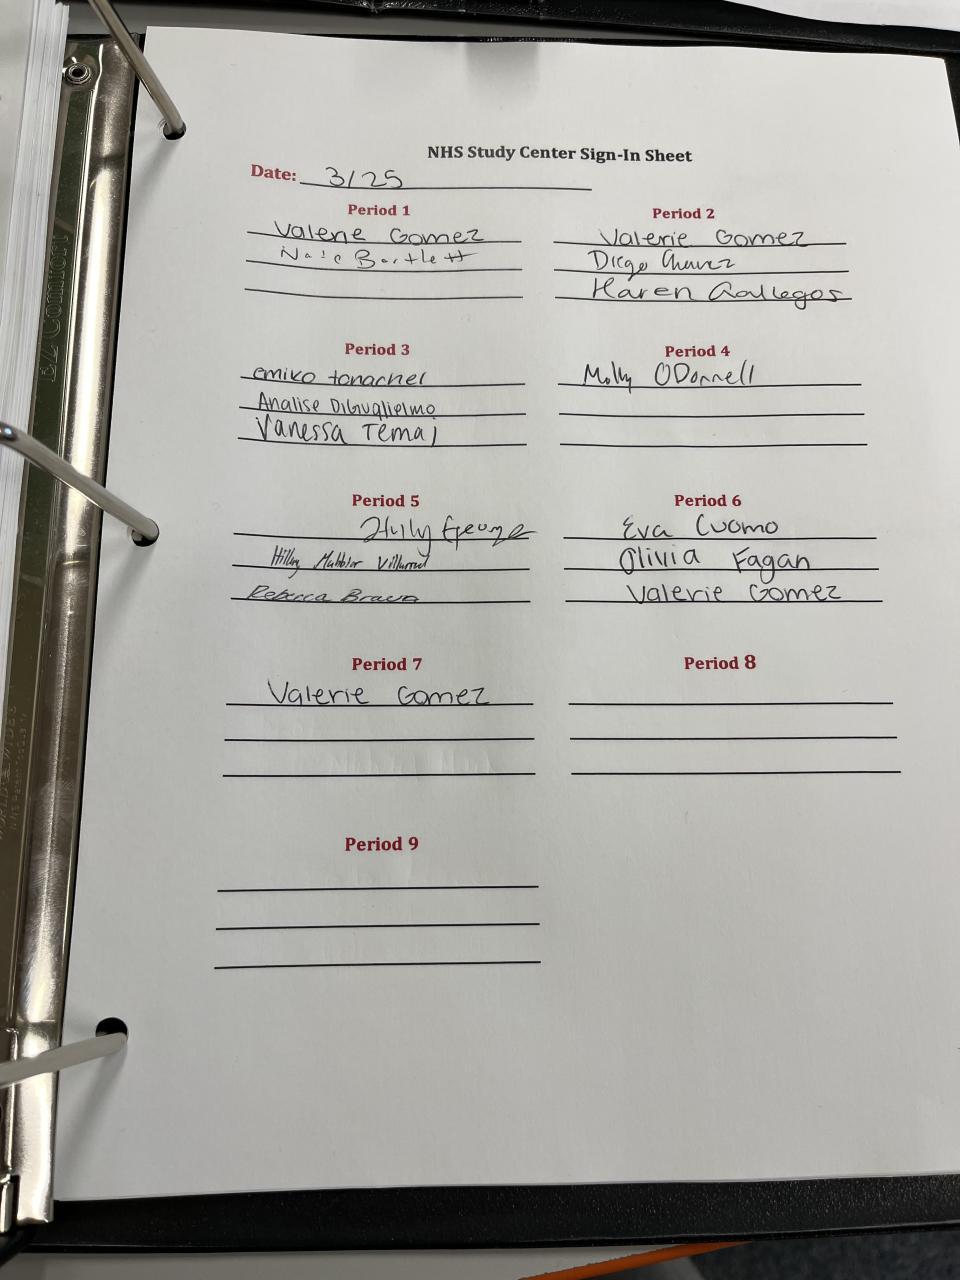 NHS Study Center Sign-In Sheet
Date: 3/25
Period 1
Valerie Gomez
Nate Bartlett
Period 2
Valerie Gomez
Diego Chavez
Karen Gallegos
Period 3
emiko tonachel
Analise DiGuglielmo
Vanessa Temaj
Period 4
Molly ODonnell
Period 5
George
Rebecca Bravo
Period 6
Eva Cuomo
Olivia Fagan
Valerie Gomez
Period 7
Valerie Gomez
Period 8
Period 9